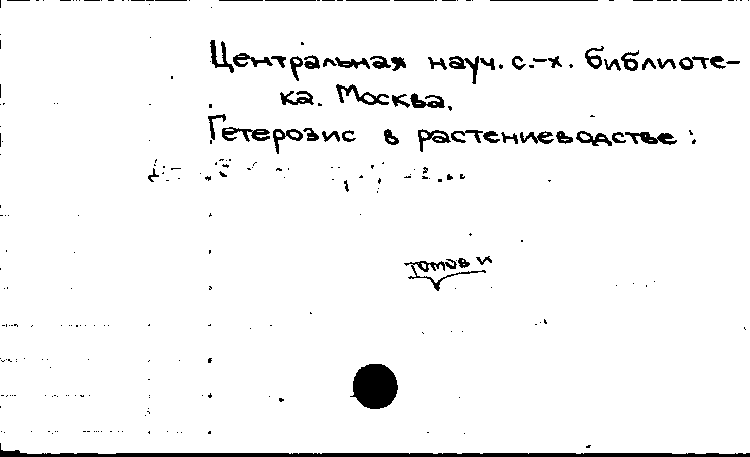 Центральная науч. с.-х. библиоте-
ка. Москва.
Гетерозис в растениеводстве:
томов и